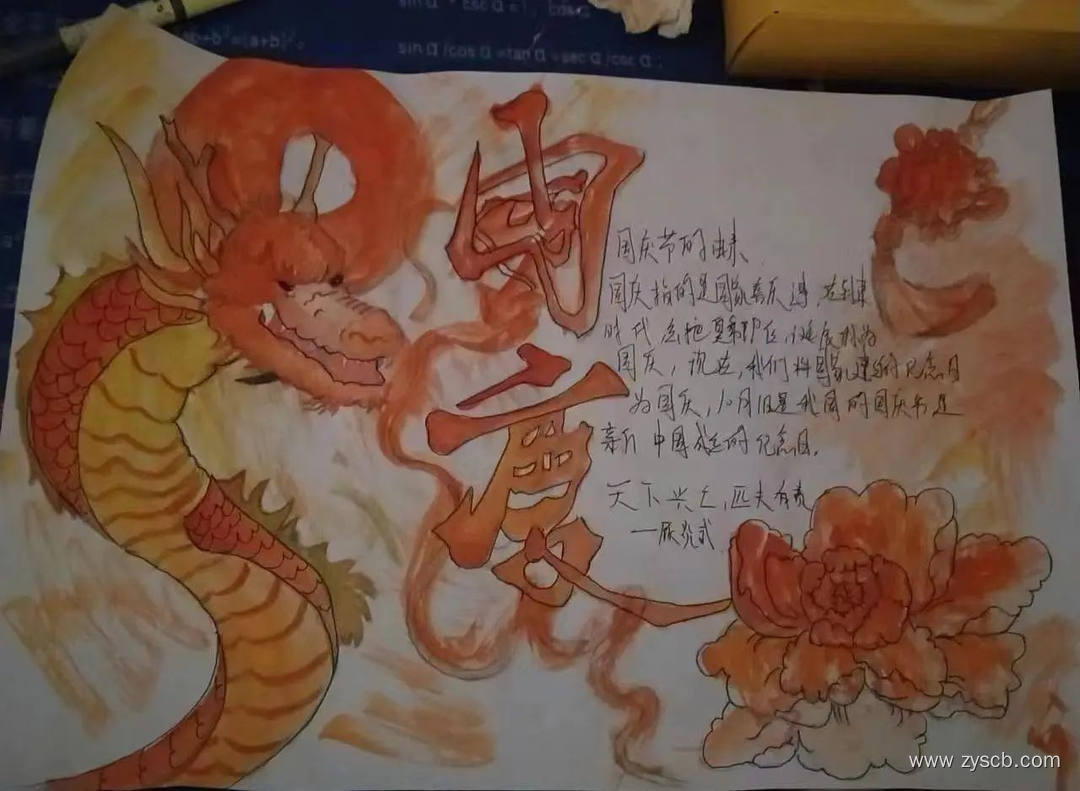 sinα·cscα=1，cosα
ab+b²=(a+b)²。
sinα/cosα=tanα=secα/cscα；
国庆
国庆节的由来、
国庆指的是国家喜庆
时代
国庆，现在，我们将国家建的纪念日
为国庆，10月1日是我国的国庆节是
新中国成立的纪念日。
天下兴亡，匹夫有责
—顾炎武
www.zyscb.com